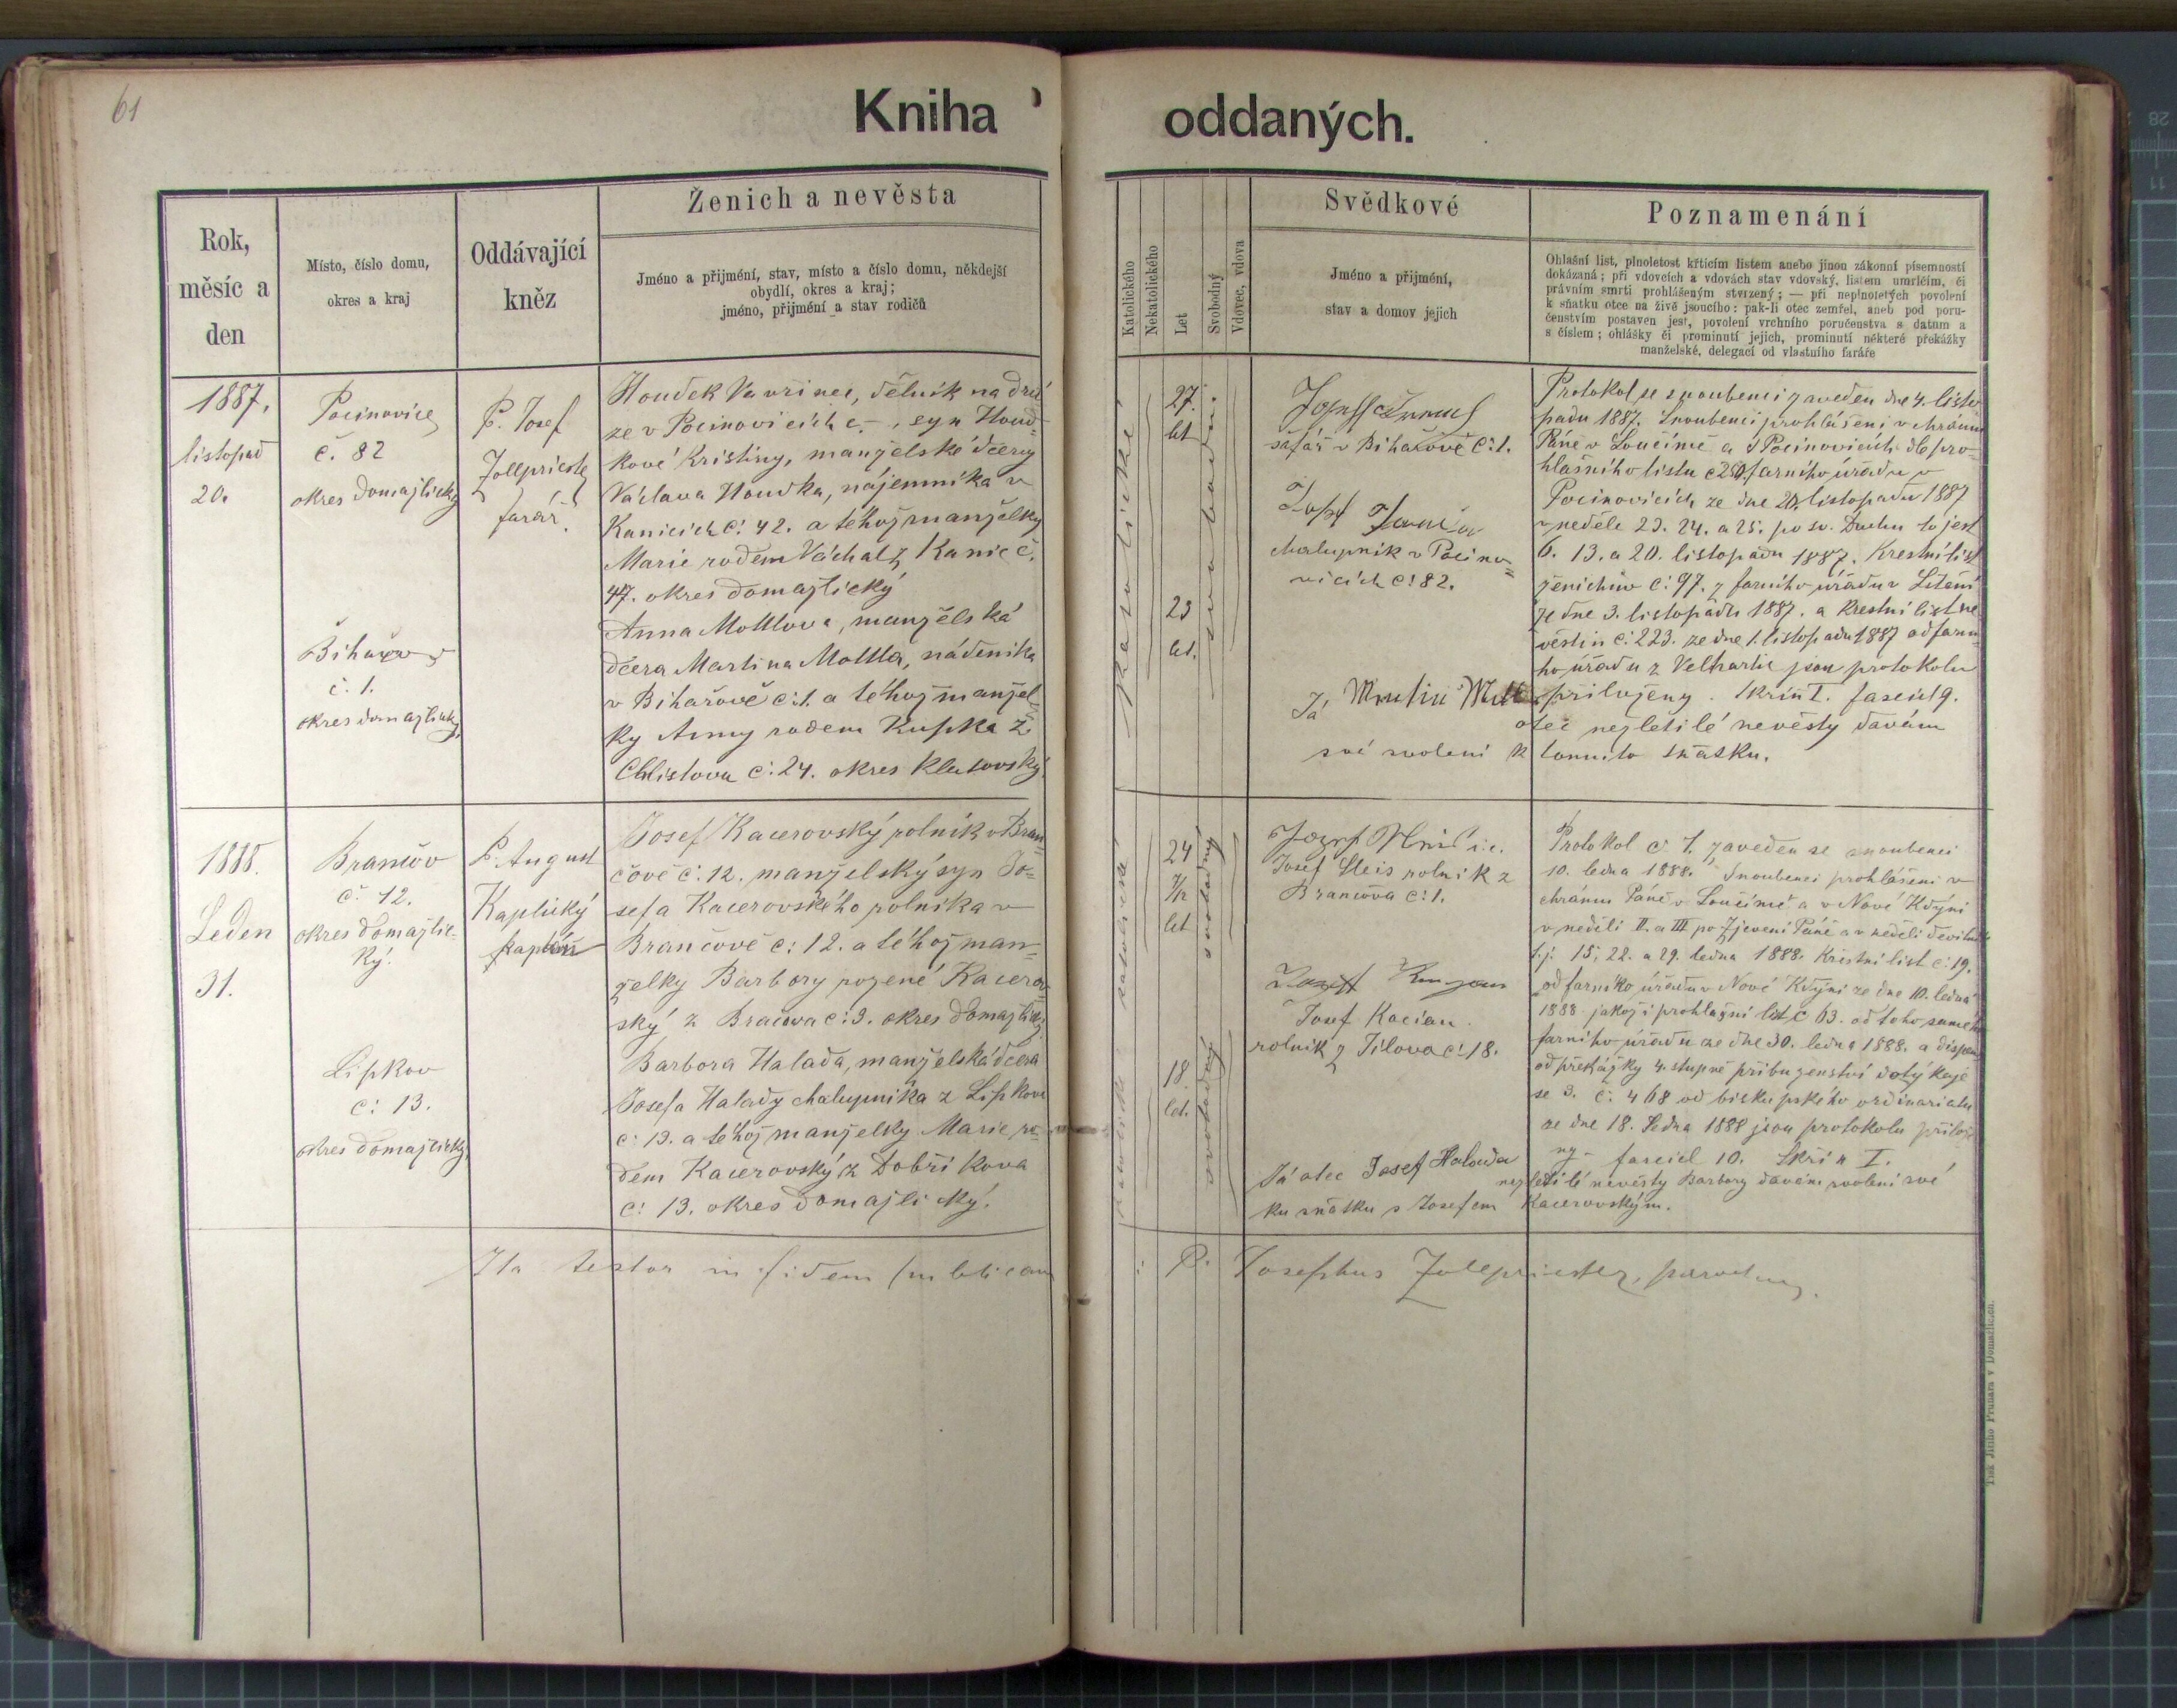 61
Kniha oddaných.
Rok,
měsíc a
den
Místo, číslo domu,
okres a kraj
Oddávající
kněz
Ženich a nevěsta
Jméno a přijmění, stav, místo a číslo domu, někdejší
obydlí, okres a kraj;
jméno, přijmění a stav rodičů
Katolického
Nekatolického
Let
Svobodný
Vdovec, vdova
Svědkové
Jméno a přijmění,
stav a domov jejich
Poznamenání
Ohlašní list, plnoletost křticím listem anebo jinou zákonní písemností
dokázaná; při vdovcích a vdovách stav vdovský, listem umrlčím, či
právním smrti prohlášeným stvrzený; — při neplnoletých povolení
k sňatku otce na živě jsoucího: pak-li otec zemřel, aneb pod poru-
čenstvím postaven jest, povolení vrchního poručenstva s datum a
s číslem; ohlášky či prominutí jejich, prominutí některé překážky
manželské, delegací od vlastního faráře
1887.
listopad
20.
Pocinovice
č. 82
okres domažlický
P. Josef
Zollpriester
farář.
Houdek Vavřinec, dělník na drá
ze v Pocinovicích č. –, syn Houd=
kové Kristiny, manželské dcery
Václava Houdka, nájemníka v
Kanicích č: 42. a téhož manželky
Marie rodem Váchal z Kanic č.
47. okres domažlický
Bihařov
č. 1.
okres domažlický
Anna Mottlova, manželská
dcera Martina Mottla, nádeníka
v Bihařově č:1. a téhož manžel
ky Anny rodem Kupka z
Chlistova č: 24. okres Klatovský.
katolické
27.
let
23
let.
Josef
šafář v Bihařově č:1.
Josef
chalupník v Pocino=
vicích č: 82.
Protokol se snoubenci zaveden dne 4. listo
padu 1887. Snoubenci prohlášeni v chrámu
Páně v Loučimě a v Pocinovicích dle pro-
hlašního listu č farního úřadu v
Pocinovicích ze dne 20. listopadu 1887
v neděle 23. 24. a 25. po sv. Duchu to jest
6. 13. a 20. listopadu 1887. Krestní list
ženichův č: 97. z farního úřadu v
ze dne 3. listopadu 1887. a Krestní list ne
věstin č: 223. ze dne 1. listopadu 1887 od farní
ho úřadu z Velhartic jsou protokolu
přiloženy. Skříň I. fascicl 9.
Já Martin Mottl
otec nezletilé nevěsty dávám
své svolení k tomuto sňatku.
1888.
Leden
31.
Brančov
č. 12.
okres domažlic-
ký.
P. August
Kaplický
kaplan
Josef Kacerovský rolník v Bran=
čově č: 12. manželský syn Jo=
sefa Kacerovského rolníka v
Brančově č: 12. a téhož man=
želky Barbory rozené Kacerov
ský z Bračova č: 3. okres domažlický.
Lipkov
č: 13.
okres domažlický
Barbora Halada, manželská dcera
Josefa Halady chalupníka z Lipkova
č: 13. a téhož manželky Marie ro=
dem Kacerovský z Dobříkova
č: 13. okres domažlický.
katolické
24
7/12
let
svobodný
18.
let.
svobodná
Josef
Josef Sleis rolník z
Brančova č: 1.
Josef Kocian
rolník z Jílova č: 18.
Protokol č: 1. zaveden se snoubenci
10. ledna 1888. Snoubenci prohlášeni v
chrámu Páně v Loučimě a v Nové Kdyni
v neděli II. a III po Zjevení Páně a v neděli devítník
t.j. 15, 22. a 29. ledna 1888. Krestní list č: 19.
od farního úřadu v Nové Kdyni ze dne 10. ledna
1888 jakož i prohlašní list č 63. od toho samého
farního úřadu ze dne 30. ledna 1888. a dispen
od překážky 4. stupně příbuzenství dotýkaje
se 3. č: 468 od biskupského ordinariatu
ze dne 18. Ledna 1888 jsou protokolu přilože
ny. fascicl 10. Skříň I.
Já otec Josef Halada nezletilé nevěsty Barbory dávám svolení své
ku sňatku s Josefem Kacerovským.
Ita testor in fidem publicam P. Josephus Zollpriester, parochus.
Tisk Jiřího Prunara v Domažlicích.